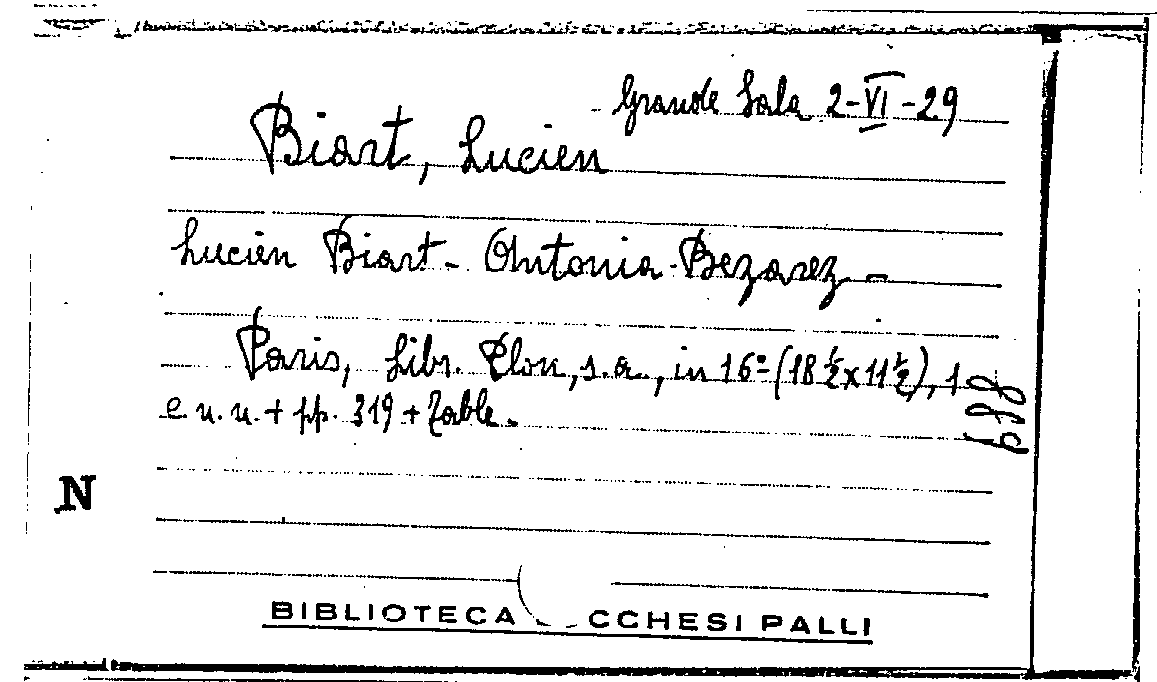 Grande Sala 2-VI-29
Biart, Lucien
Lucien Biart - Antonia Bezarez -
Paris, Libr. Plon, s.a., in 16º (18½ x 11½), 1
e n. n. + pp. 319 + Table.
889
N
BIBLIOTECA CCHESI PALLI